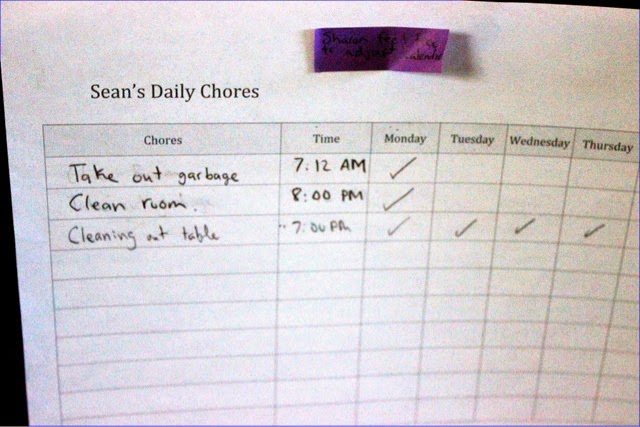 Sharon feel free
to adjust calendar
Sean's Daily Chores
Chores Time Monday Tuesday Wednesday Thursday
Take out garbage 7:12 AM ✓
Clean room. 8:00 PM ✓
Cleaning out table 7:00 PM ✓ ✓ ✓ ✓